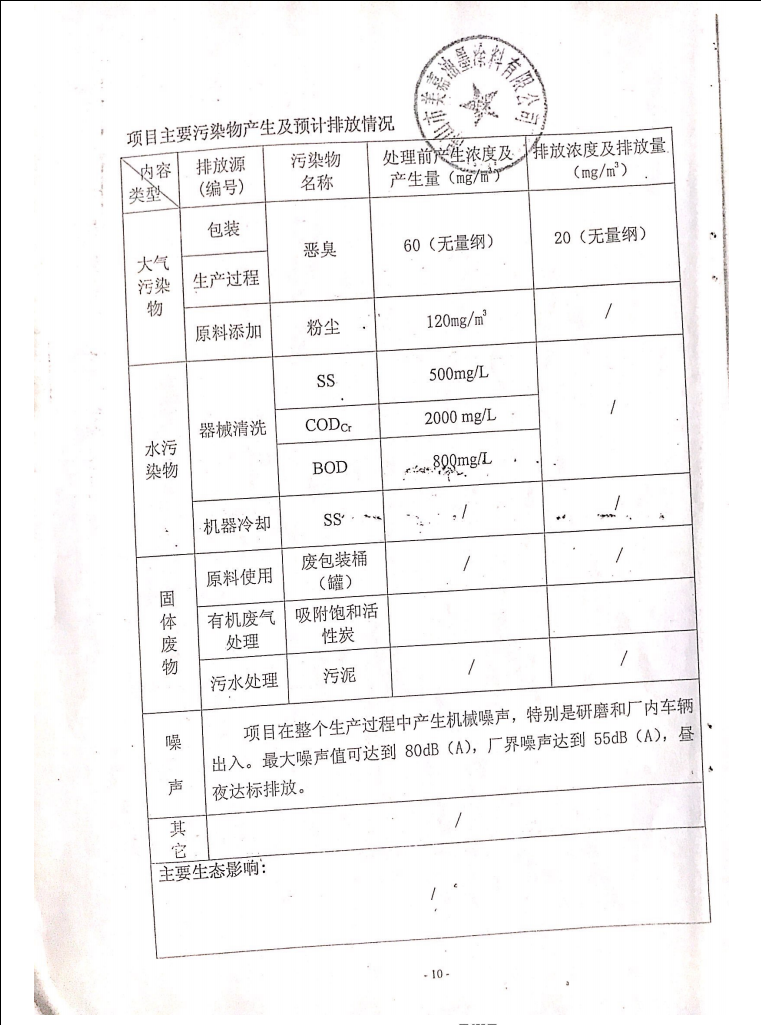 山市美嘉油墨涂料有限公司
项目主要污染物产生及预计排放情况
内容
类型
排放源
(编号)
污染物
名称
处理前产生浓度及
产生量（mg/m³）
排放浓度及排放量
（mg/m³）
大气
污染
物
包装
恶臭
60（无量纲）
20（无量纲）
生产过程
原料添加
粉尘
120mg/m³
/
水污
染物
器械清洗
SS
500mg/L
/
CODCr
2000 mg/L
BOD
800mg/L
机器冷却
SS
/
/
固
体
废
物
原料使用
废包装桶
（罐）
/
/
有机废气
处理
吸附饱和活
性炭
污水处理
污泥
/
/
噪
声
项目在整个生产过程中产生机械噪声，特别是研磨和厂内车辆
出入。最大噪声值可达到 80dB（A），厂界噪声达到 55dB（A），昼
夜达标排放。
其
它
/
主要生态影响：
/
- 10 -